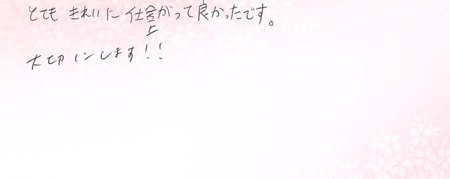 とても きれいに 仕上がって良かったです。
大切にします!!